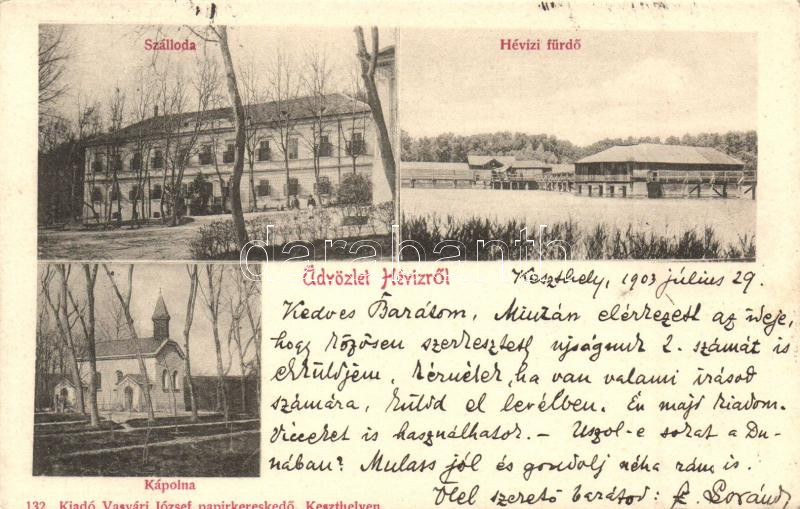 Szálloda
Hévizi fürdő
darabanth
Üdvözlet Hévizről
Keszthely, 1903 július 29.
Kedves Barátom, Miután elérkezett az ideje,
hogy közösen szerkesztett ujságunk 2. számát is
elküldjem, kérnélek, ha van valami irásod
számára, küldd el levélben. Én majd kiadom.
Vicceket is használhatok. – Uszol-e sokat a Du-
nában? Mulass jól és gondolj néha rám is.
Ölel szerető barátod: Loránd
Kápolna
132. Kiadó Vasvári József papirkereskedő, Keszthelyen